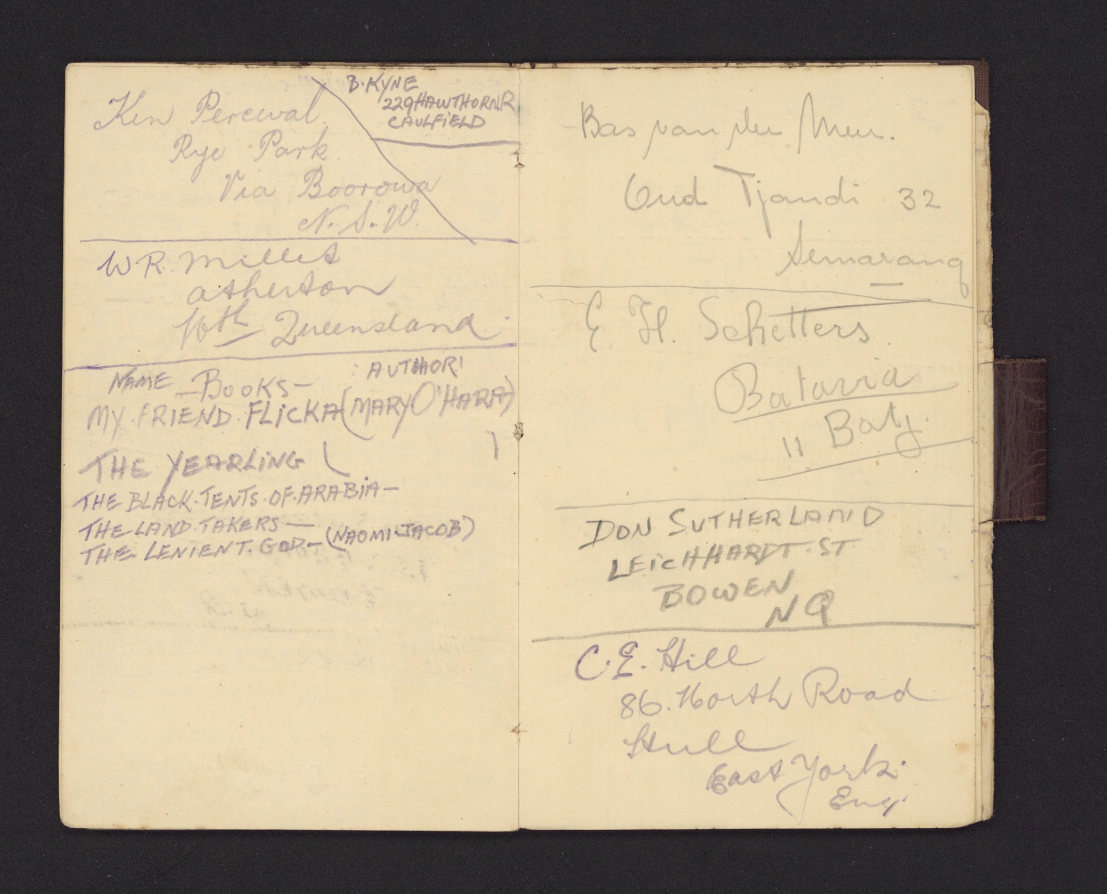 Ken Percival
Rye Park
Via Boorowa
N.S.W.
B. KYNE
229 HAWTHORN R
CAULFIELD
W R. Millet
Atherton
Nth Queensland
NAME - BOOKS - AUTHOR
MY FRIEND FLICKA (MARY O'HARA)
THE YEARLING
THE BLACK TENTS OF ARABIA -
THE LAND TAKERS -
THE LENIENT GOD - (NAOMI JACOB)
Bas van der
Oud Tjandi 32
Semarang
E H. Schetters
Batavia
11 Batj.
DON SUTHERLAND
LEICHHARDT. ST
BOWEN
NQ
C. E. Hill
86. North Road
Hull
East York.
Eng.